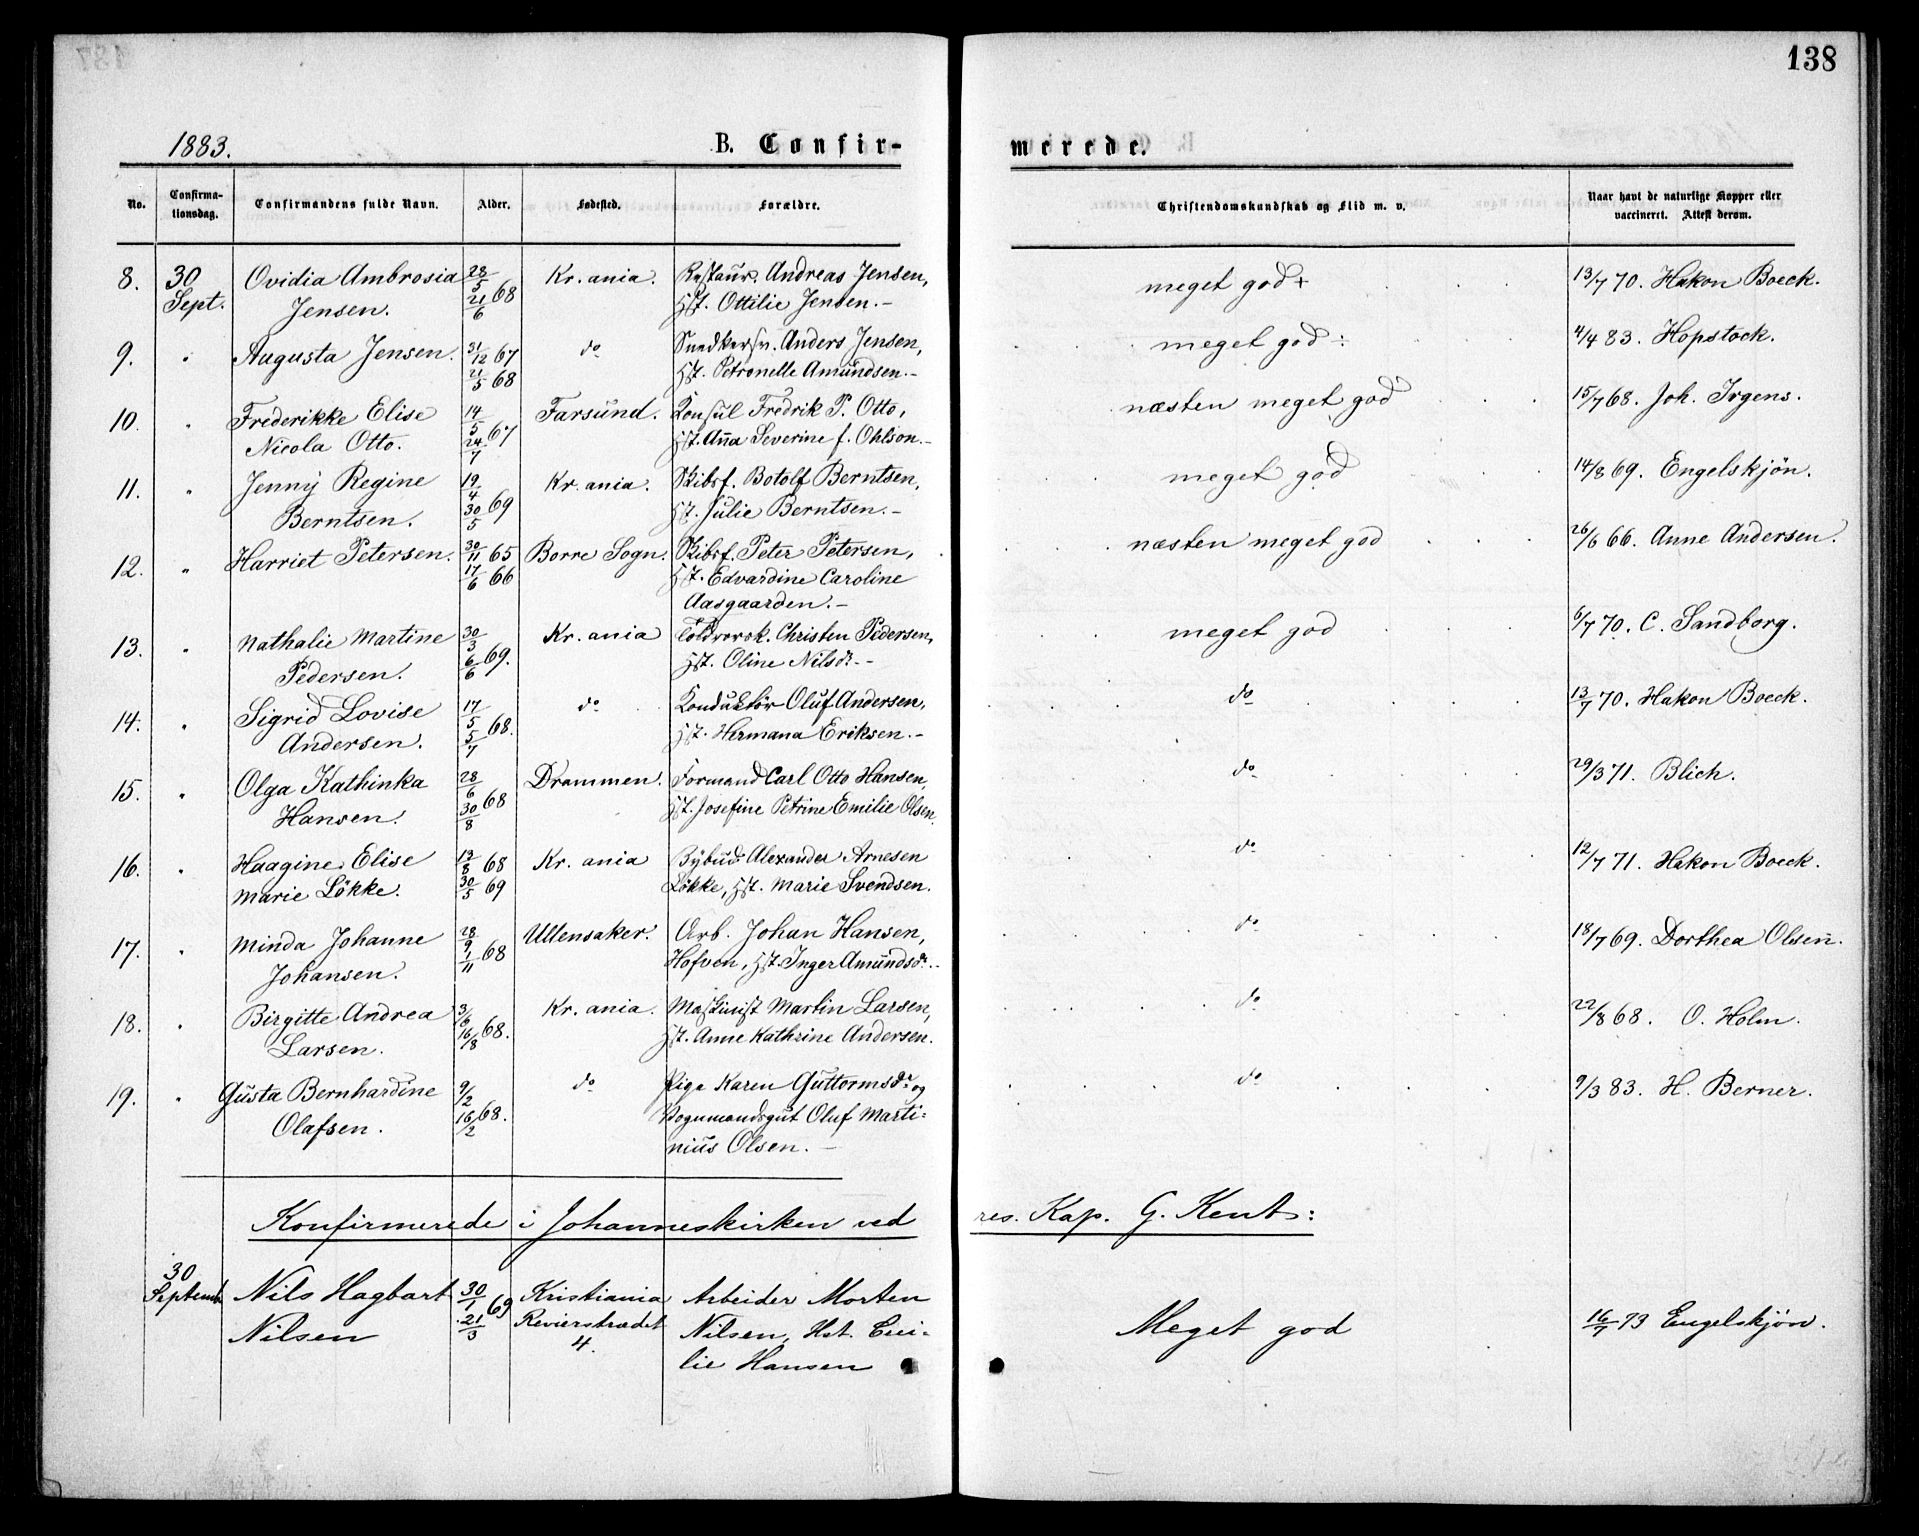 138
1883.
B. Confirmerede.
No.
Confirmationsdag.
Confirmandens fulde Navn.
Alder.
Fødested.
Forældre.
Christendomskundskab og Flid m. v.
Naar havt de naturlige Kopper eller vaccineret. Attest derom.
8. 30 Sept. Ovidia Ambrosia Jensen. 28/5 21/6 68 Kr.ania. Restaur. Andreas Jensen, Hst. Ottilie Jensen.— meget god + 13/7 70. Hakon Boeck.
9. " Augusta Jensen. 31/12 67 21/5 68 do Snedkersv. Anders Jensen, Hst. Petronelle Amundsen.— meget god ÷ 4/4 83. Hopstock.
10. " Frederikke Elise Nicola Otto. 14/5 24/7 67 Farsund. Konsul Fredrik P. Otto, Hst. Anna Severine f. Ohlson.— næsten meget god 15/7 68. Joh. Irgens.
11. " Jenny Regine Berntsen. 19/4 30/5 69 Kr.ania. Skibsf. Botolf Berntsen, Hst. Julie Berntsen.— meget god 14/8 69. Engelskjön.
12. " Harriet Petersen. 30/11 65 17/6 66 Borre Sogn. Skibsf. Peter Petersen, Hst. Edvardine Caroline Aasgaarden.— næsten meget god 26/6 66. Anne Andersen.
13. " Nathalie Martine Pedersen. 30/3 6/6 69. Kr.ania Toldrorsk. Christen Pedersen, Hst. Oline Nilsdr.— meget god 6/7 70. C. Sandborg.
14. " Sigrid Lovise Andersen. 17/5 5/7 68. do Konduktør Oluf Andersen, Hst. Hermana Eriksen.— do 13/7 70. Hakon Boeck.
15. " Olga Kathinka Hansen. 28/6 30/8 68 Drammen. Formand Carl Otto Hansen, Hst. Josefine Petrine Emilie Olsen. do 29/3 71. Blich.
16. " Haagine Elise Marie Lökke. 13/8 68 30/5 69 Kr.ania Bybud Alexander Arnesen Lökke, Hst. Marie Svendsen. do 12/7 71. Hakon Boeck.
17. " Minda Johanne Johansen. 28/9 1/11 68 Ullensaker. Arb. Johan Hansen, Hofven, Hst. Inger Amundsdr.— do 18/7 69. Dorthea Olsen.
18. " Birgitte Andrea Larsen. 3/6 16/8 68. Kr.ania. Maskinist Martin Larsen, Hst. Anne Kathrine Andersen. do 22/8 68. O. Holm.
19. " Gusta Bernhardine Olafsen. 9/2 16/2 68. do Pige Karen Guttormsdr og Vognmandsgut Oluf Martinius Olsen.— do 9/3 83. H. Berner.
Konfirmerede i Johanneskirken ved res. Kap. G. Kent:
30 Septemb Nils Hagbart Nilsen 30/1 21/3 69 Kristiania Revierstrædet 4. Arbeider Morten Nilsen, Hst. Cecilie Hansen Meget god 16/7 73 Engelskjøn.